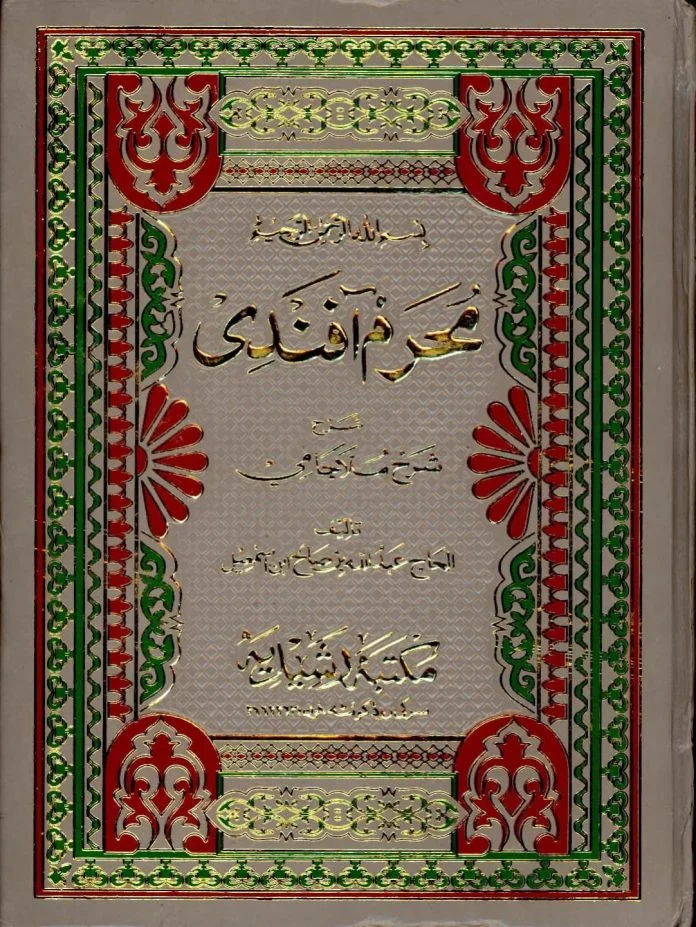 بسم الله الرحمن الرحيم
مُحَرَّمْ آفَنْدِى
شرح
شَرَحْ مُلَّا جَامِي
تأليف
الحاج عبد الله بن صالح ابن اسمعيل
مكتبة رشيدية